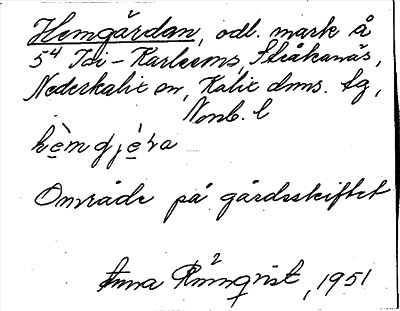 Hemgärdan, odl. mark å
54 Tor-Karleoms, Stråkanäs,
Nederkalix sn, Kalix dms. tg,
Nonb. l
hèmgjè́ra
Område på gårdsskiftet
Anna Rönnqvist, 1951